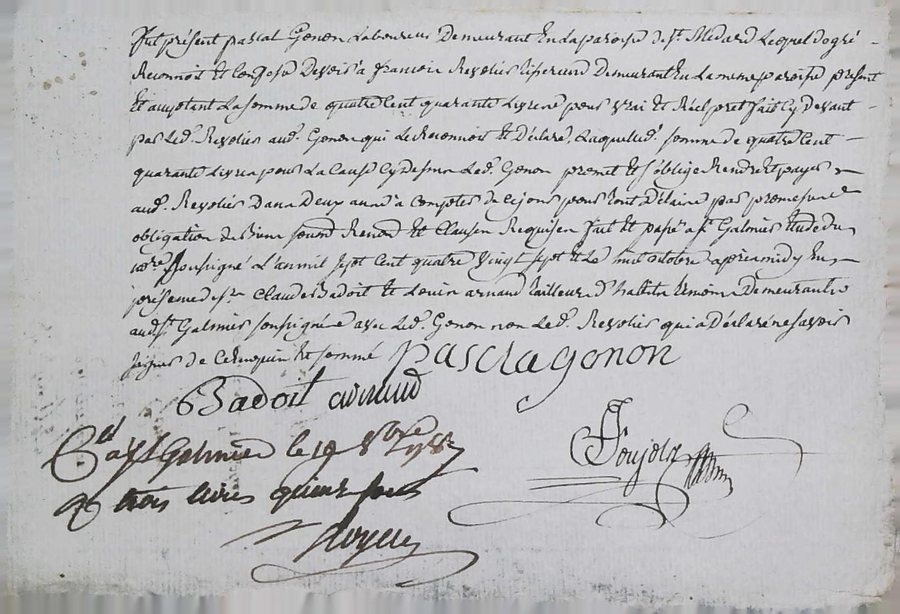 fut présent pascal Gonon Laboureur Demeurant En La paroisse de St. Medard Lequel de gré
Reconnoit Et Confesse Devoir a francois Revolier Demeurant En La meme paroisse present
Et acceptant La somme de quatre Cent quarante Livres pour vrai Et Réel pret fait Cy devant
par Led. Revolier aud. Gonon qui Le Reconnoit Et Déclare, Laquelle d. somme de quatre Cent
quarante Livres pour La Cause Cy dessus Led. Gonon promet Et s'oblige Rendre Et payer
aud. Revolier Dans Deux ans a Compter de Ce jour pour tout Délai par promesse
obligation de Biens Renon Et Clauses Requises fait Et passé a St. Galmier Etude du
nore. soussigné L'an mil sept Cent quatre vingt sept Et Le octobre après midy En
présence de sr. Claude Badoit Et Louis arnaud tailleur d'habits Demeurants
aud. St. Galmier soussignés avec Led. Gonon non Led. Revolier qui a Déclaré ne savoir
signer de Ce Enquis Et sommé pascla gonon
Badoit arnaud
a St Galmier le 19 8bre 1787
trois livres quinze sous